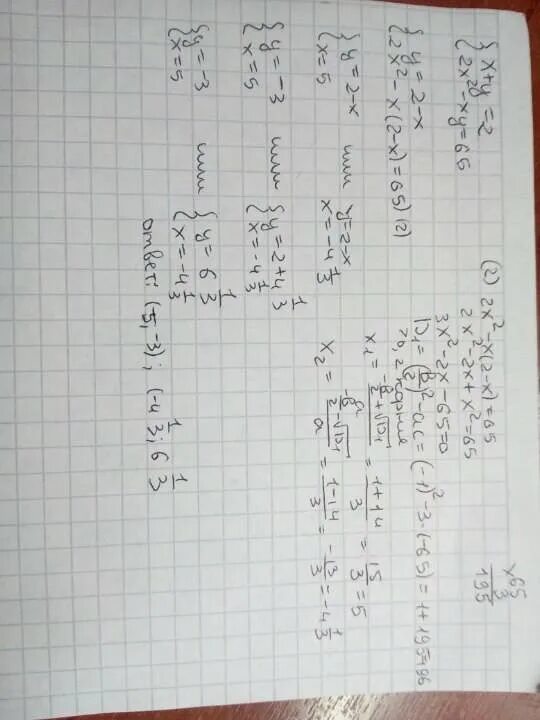 { x+y=2
{ 2x²-xy=65
{ y=2-x
{ 2x²-x(2-x)=65) (2)
{ y=2-x или y=2-x
{ x=5 x=-4 1/3
{ y=-3 или { y=2+4 1/3
{ x=5 { x=-4 1/3
{ y=-3 или { y=6 1/3
{ x=5 { x=-4 1/3
ответ: (5,-3); (-4 1/3; 6 1/3
(2) 2x²-x(2-x)=65
2x²-2x+x²=65
3x²-2x-65=0
D₁=(в/2)²-ac=(-1)²-3·(-65)=1+195=196
>0, 2 корня
x₁=(-в/2+√D₁)/a=(1+14)/3=15/3=5
x₂=(-в/2-√D₁)/a=(1-14)/3=-13/3=-4 1/3
x65
3
195